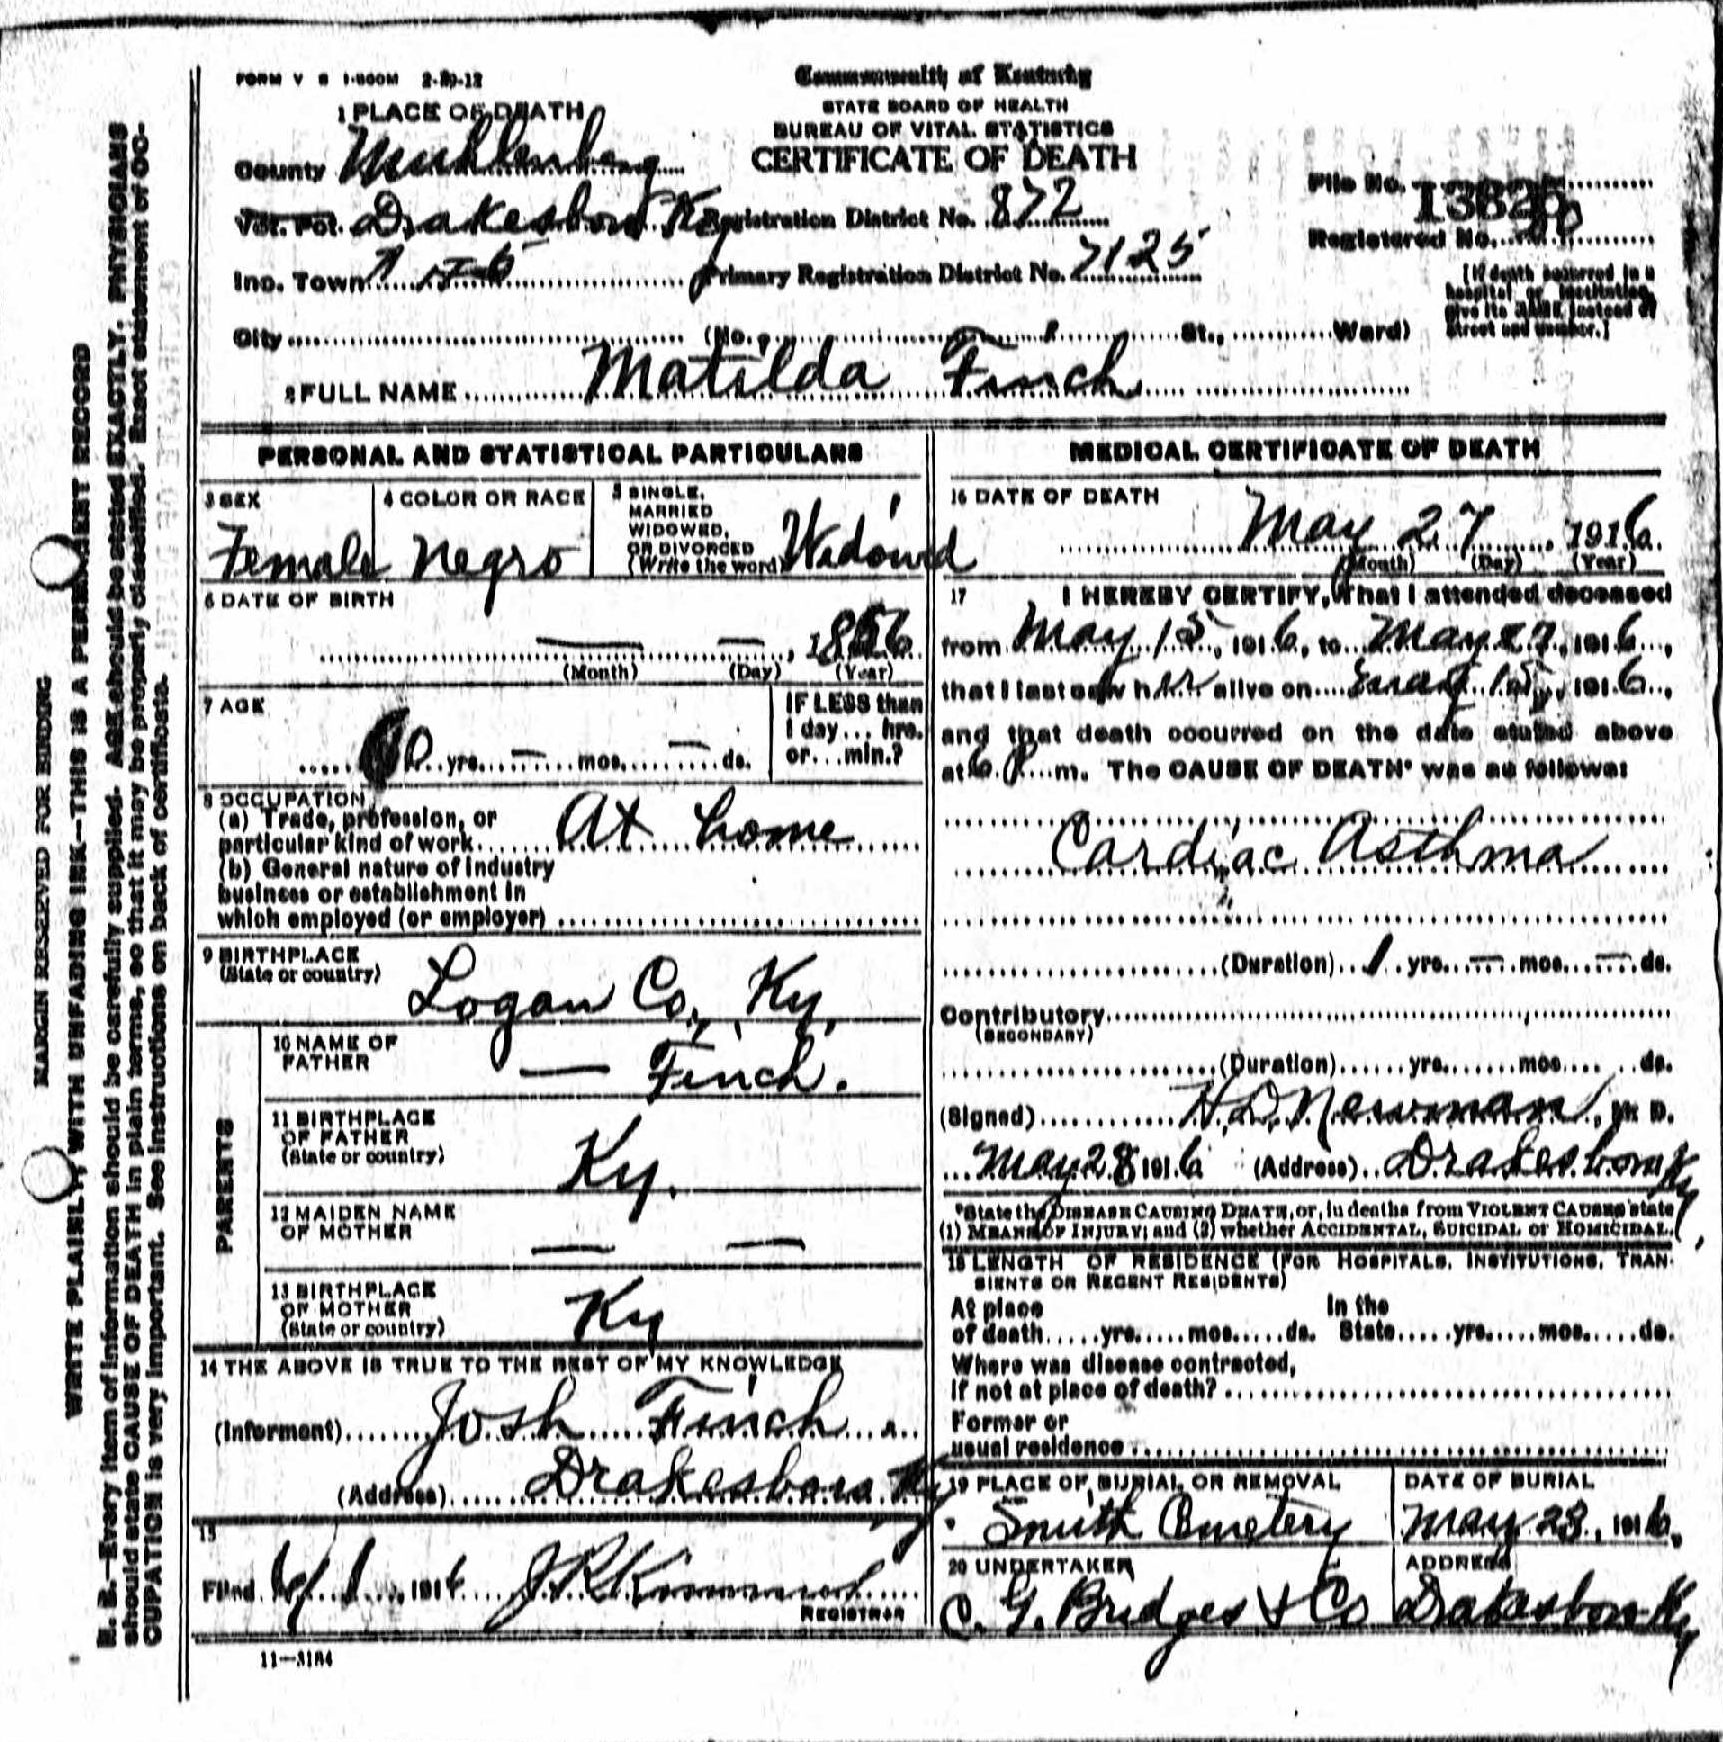 FORM V S 1-500M 2-20-12
Commonwealth of Kentucky
STATE BOARD OF HEALTH
BUREAU OF VITAL STATISTICS
CERTIFICATE OF DEATH
1 PLACE OF DEATH
County Muhlenberg
Vot. Pct. Drakesboro Ky
Registration District No. 872
File No.
Registered No.
Inc. Town
Primary Registration District No. 7125
[If death occurred in a hospital or institution, give its NAME instead of street and number.]
City (No. , St., Ward)
2 FULL NAME Matilda Finch
PERSONAL AND STATISTICAL PARTICULARS
3 SEX
Female
4 COLOR OR RACE
Negro
5 SINGLE, MARRIED WIDOWED, OR DIVORCED (Write the word) Widowd
6 DATE OF BIRTH
— — , 18
(Month) (Day) (Year)
7 AGE
yrs. — mos. — ds.
IF LESS than 1 day... hrs. or... min.?
8 OCCUPATION
(a) Trade, profession, or particular kind of work At home
(b) General nature of industry business or establishment in which employed (or employer)
9 BIRTHPLACE
(State or country) Logan Co., Ky,
PARENTS
10 NAME OF FATHER — Finch.
11 BIRTHPLACE OF FATHER (State or country) Ky.
12 MAIDEN NAME OF MOTHER — —
13 BIRTHPLACE OF MOTHER (State or country) Ky
14 THE ABOVE IS TRUE TO THE BEST OF MY KNOWLEDGE
(Informant) Josh Finch
(Address) Drakesboro Ky
15
Filed 6/1, 1916
REGISTRAR
11—3184
MEDICAL CERTIFICATE OF DEATH
16 DATE OF DEATH
May 27, 1916.
(Month) (Day) (Year)
17 I HEREBY CERTIFY, That I attended deceased
from May 15, 1916, to May 27, 1916,
that I last saw her alive on May 15, 1916,
and that death occurred on the date stated above
at 6 P. m. The CAUSE OF DEATH* was as follows:
Cardiac Asthma
(Duration) 1 yrs. — mos. — ds.
Contributory
(SECONDARY)
(Duration) yrs. mos. ds.
(Signed) H. D. Newman, M D.
May 28 1916 (Address) Drakesboro Ky
*State the DISEASE CAUSING DEATH, or, in deaths from VIOLENT CAUSES state
(1) MEANS OF INJURY; and (2) whether ACCIDENTAL, SUICIDAL or HOMICIDAL.
18 LENGTH OF RESIDENCE (FOR HOSPITALS, INSTITUTIONS, TRANSIENTS OR RECENT RESIDENTS)
At place of death yrs. mos. ds. In the State yrs. mos. ds.
Where was disease contracted,
if not at place of death?
Former or
usual residence
19 PLACE OF BURIAL OR REMOVAL
Smith Cemetery
DATE OF BURIAL
May 28, 1916,
20 UNDERTAKER
C. G. Bridges & Co
ADDRESS
Drakesboro Ky
MARGIN RESERVED FOR BINDING
WRITE PLAINLY, WITH UNFADING INK—THIS IS A PERMANENT RECORD
N. B.—Every item of information should be carefully supplied. AGE should be stated EXACTLY. PHYSICIANS
should state CAUSE OF DEATH in plain terms, so that it may be properly classified. Exact statement of OC-
CUPATION is very important. See instructions on back of certificate.